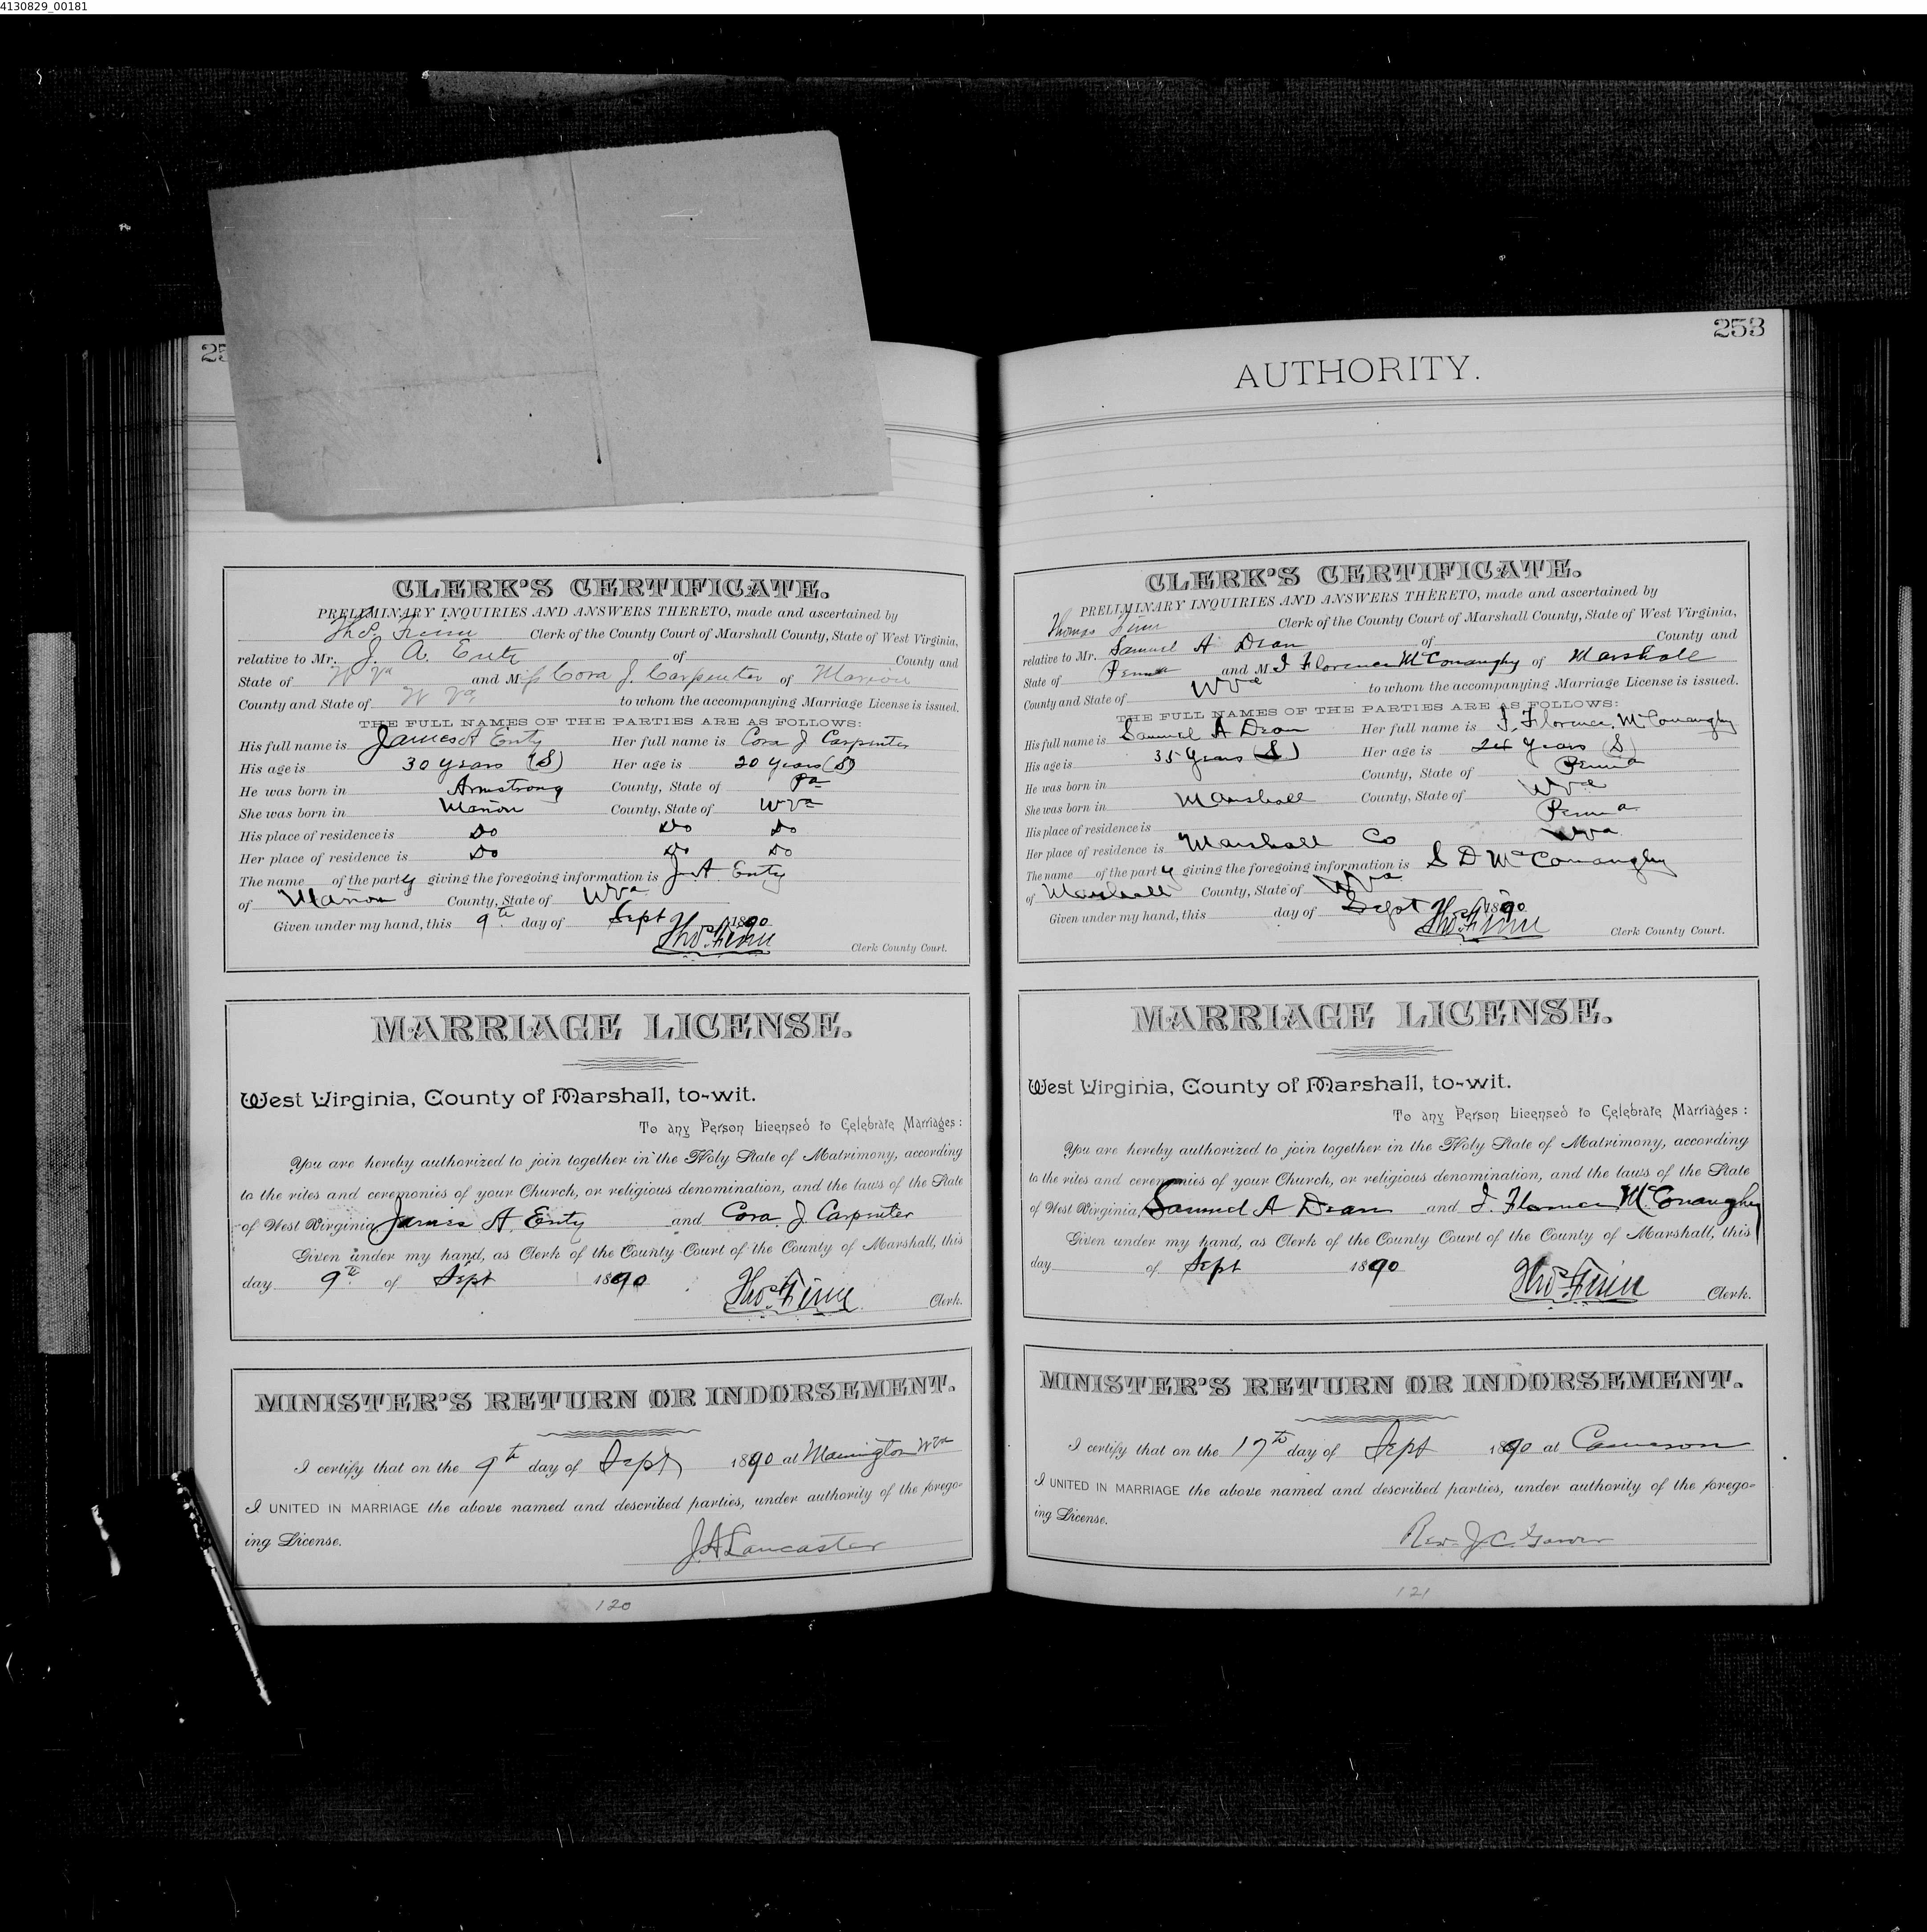 4130829_00181
25
CLERK'S CERTIFICATE.
PRELIMINARY INQUIRIES AND ANSWERS THERETO, made and ascertained by
Thos. Finn Clerk of the County Court of Marshall County, State of West Virginia,
relative to Mr. J. A. Enty of County and
State of W Va and Miss Cora J. Carpenter of Marion
County and State of W Va, to whom the accompanying Marriage License is issued.
THE FULL NAMES OF THE PARTIES ARE AS FOLLOWS:
His full name is James A Enty Her full name is Cora J Carpenter
His age is 30 years (S) Her age is 20 years (S)
He was born in Armstrong County, State of Pa
She was born in Marion County, State of W Va
His place of residence is Do Do Do
Her place of residence is Do Do Do
The name of the party giving the foregoing information is J. A. Enty
of Marion County, State of W Va
Given under my hand, this 9th day of Sept 1890
Thos. Finn Clerk County Court.
MARRIAGE LICENSE.
West Virginia, County of Marshall, to-wit.
To any Person Licensed to Celebrate Marriages:
You are hereby authorized to join together in the Holy State of Matrimony, according
to the rites and ceremonies of your Church, or religious denomination, and the laws of the State
of West Virginia, James A. Enty and Cora J. Carpenter
Given under my hand, as Clerk of the County Court of the County of Marshall, this
day 9th of Sept 1890
Thos. Finn Clerk.
MINISTER'S RETURN OR INDORSEMENT.
I certify that on the 9th day of Sept 1890 at Mannington W Va
I UNITED IN MARRIAGE the above named and described parties, under authority of the forego-
ing License.
J A Lancaster
120
253
AUTHORITY.
CLERK'S CERTIFICATE.
PRELIMINARY INQUIRIES AND ANSWERS THERETO, made and ascertained by
Thomas Finn Clerk of the County Court of Marshall County, State of West Virginia,
relative to Mr. Samuel A Dean of County and
State of Penna and M I Florence McConaughy of Marshall
County and State of W Va to whom the accompanying Marriage License is issued.
THE FULL NAMES OF THE PARTIES ARE AS FOLLOWS:
His full name is Samuel A Dean Her full name is I. Florence McConaughy
His age is 35 years (S) Her age is years (S)
He was born in County, State of Penna
She was born in Marshall County, State of W Va
His place of residence is Penna
Her place of residence is Marshall Co W Va
The name of the party giving the foregoing information is S D McConaughy
of Marshall County, State of W Va
Given under my hand, this day of Sept 1890
Thos. Finn Clerk County Court.
MARRIAGE LICENSE.
West Virginia, County of Marshall, to-wit.
To any Person Licensed to Celebrate Marriages:
You are hereby authorized to join together in the Holy State of Matrimony, according
to the rites and ceremonies of your Church, or religious denomination, and the laws of the State
of West Virginia, Samuel A Dean and I. Florence McConaughey
Given under my hand, as Clerk of the County Court of the County of Marshall, this
day of Sept 1890
Thos. Finn Clerk.
MINISTER'S RETURN OR INDORSEMENT.
I certify that on the 17th day of Sept 1890 at Cameron
I UNITED IN MARRIAGE the above named and described parties, under authority of the forego-
ing License.
Rev. J. C.
121